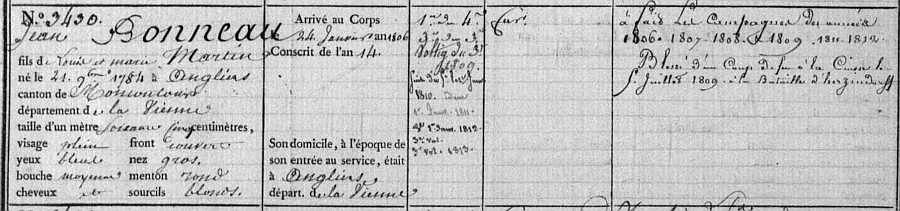 N.º 3430.
Jean Bonneau
fils de Louis et marie Martin
né le 21. 9bre 1784 à Angliers
canton de Monontours
département de la Vienne
taille d'un mètre soixante cinq centimètres,
visage plein front couvert
yeux bleus nez gros.
bouche moyenne menton rond
cheveux et sourcils blonds.
Arrivé au Corps
24 Janvier 1806
Conscrit de l'an 14.
Son domicile, à l'époque de
son entrée au service, était
à Angliers
départ. de la Vienne
1er 4e
3e
Voltig du 3e
1809.
1810.
1er Janv. 1811
4e 1er Janv. 1812
3e Vol.
3e Vol. 1813.
à fait les Campagnes des années
1806. 1807. 1808. & 1809. 1811. 1812.
Blessé d'un Coup de feu à la Cuisse le
5. Juillet 1809. à la Bataille d'